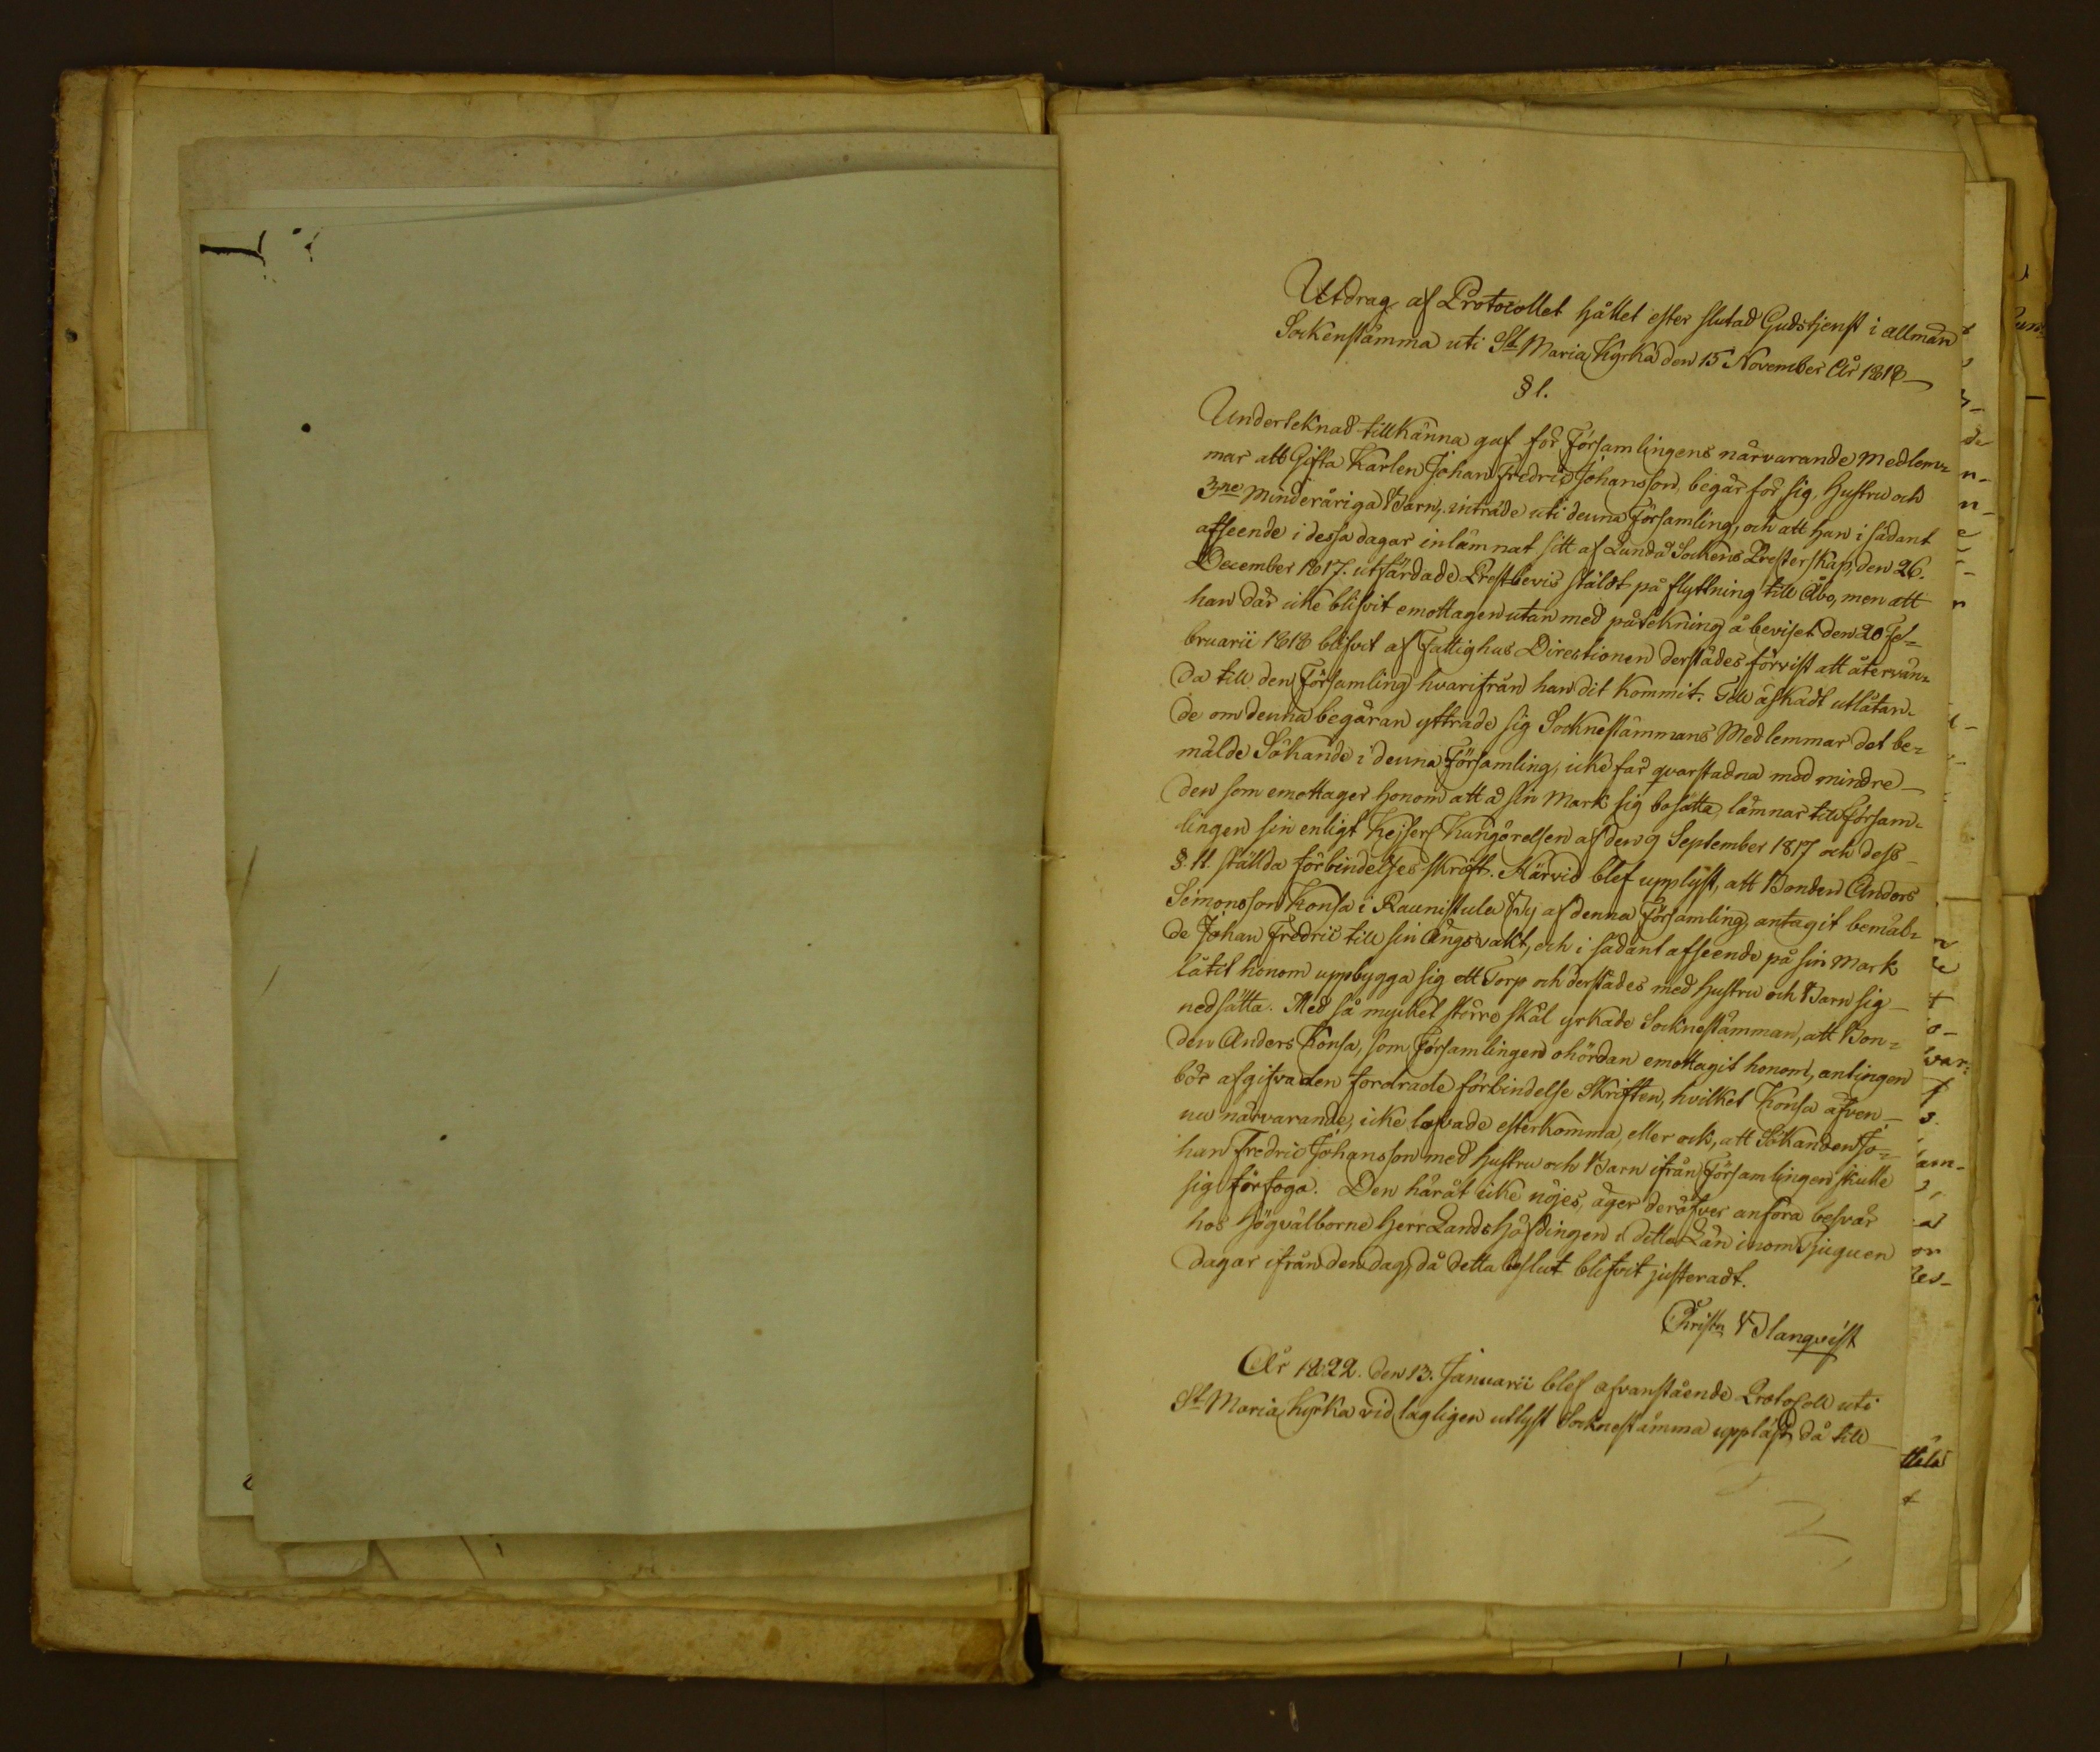 Utdrag af Protocollet hållet efter slutad Gudstjenst i allmän
Sockenstämma uti St Maria Kyrka den 15 November År 1818
§ 1.
Underteknad tillkänna gaf för Församlingens närvarande Medlem=
mar att Gifta Karlen Johan Fredric Johansson, begär för sig, hustru och
3ne Minderåriga Barn, inträde uti denna Församling, och att han i sådant
afseende i dessa dagar inlämnat sitt af Lundo Sockens Presterskap, den 26.
December 1817. utfärdade Prestbevis stäldt på flyttning till Åbo, men att
han där icke blifvit emottagen utan med påtekning å beviset den 20 Fe=
bruarii 1818 blifvit af Fattighus Directionen derstädes förvist att återvän=
da till den Församling hvarifrån han dit kommit. Till äskadt utlåtan=
de om denna begäran yttrade sig Socknestämmans Medlemmar det be=
mälde Sökande i denna Församling, icke får qvarstadna med mindre
den som emottager honom att å sin Mark sig bosätta, lämnar till Försam=
lingen sin enligt Kejserl Kungörelsen af den 9 September 1817 och dess
§. 11. ställda förbindelses skrift. Härvid blef upplyst, att Bonden Anders
Simonsson Konsa i Raunistula By af denna Församling, antagit bemäl=
de Johan Fredric till sin Ängsvakt, och i sådant afseende på sin Mark
låtit honom uppbygga sig ett Torp och derstädes med hustru och Barn sig
nedsätta. Med så mycket större skäl yrkade Socknestämman, att Bon=
den Anders Konsa, som Församlingen ohördan emottagit honom, antingen
bör afgifva den fordrade förbindelse Skriften, hvilket Konsa äfven
nu närvarande, icke lofvade efterkomma, eller ock, att Sökanden Jo=
han Fredric Johansson med hustru och Barn ifrån Församlingen skulle
sig förfoga. Den häråt icke nöjes, äger deröfver anföra besvär
hos Högvälborne Herr Landshöfdingen i detta Län inom tjuguen
dagar ifrån den dag, då detta beslut blifvit justeradt.
Christn Blanqvist
År 1822. den 13. Januarii blef ofvanstående Protocoll uti
St Maria Kyrka vid lagligen utlyst Socknestämma uppläst, då till